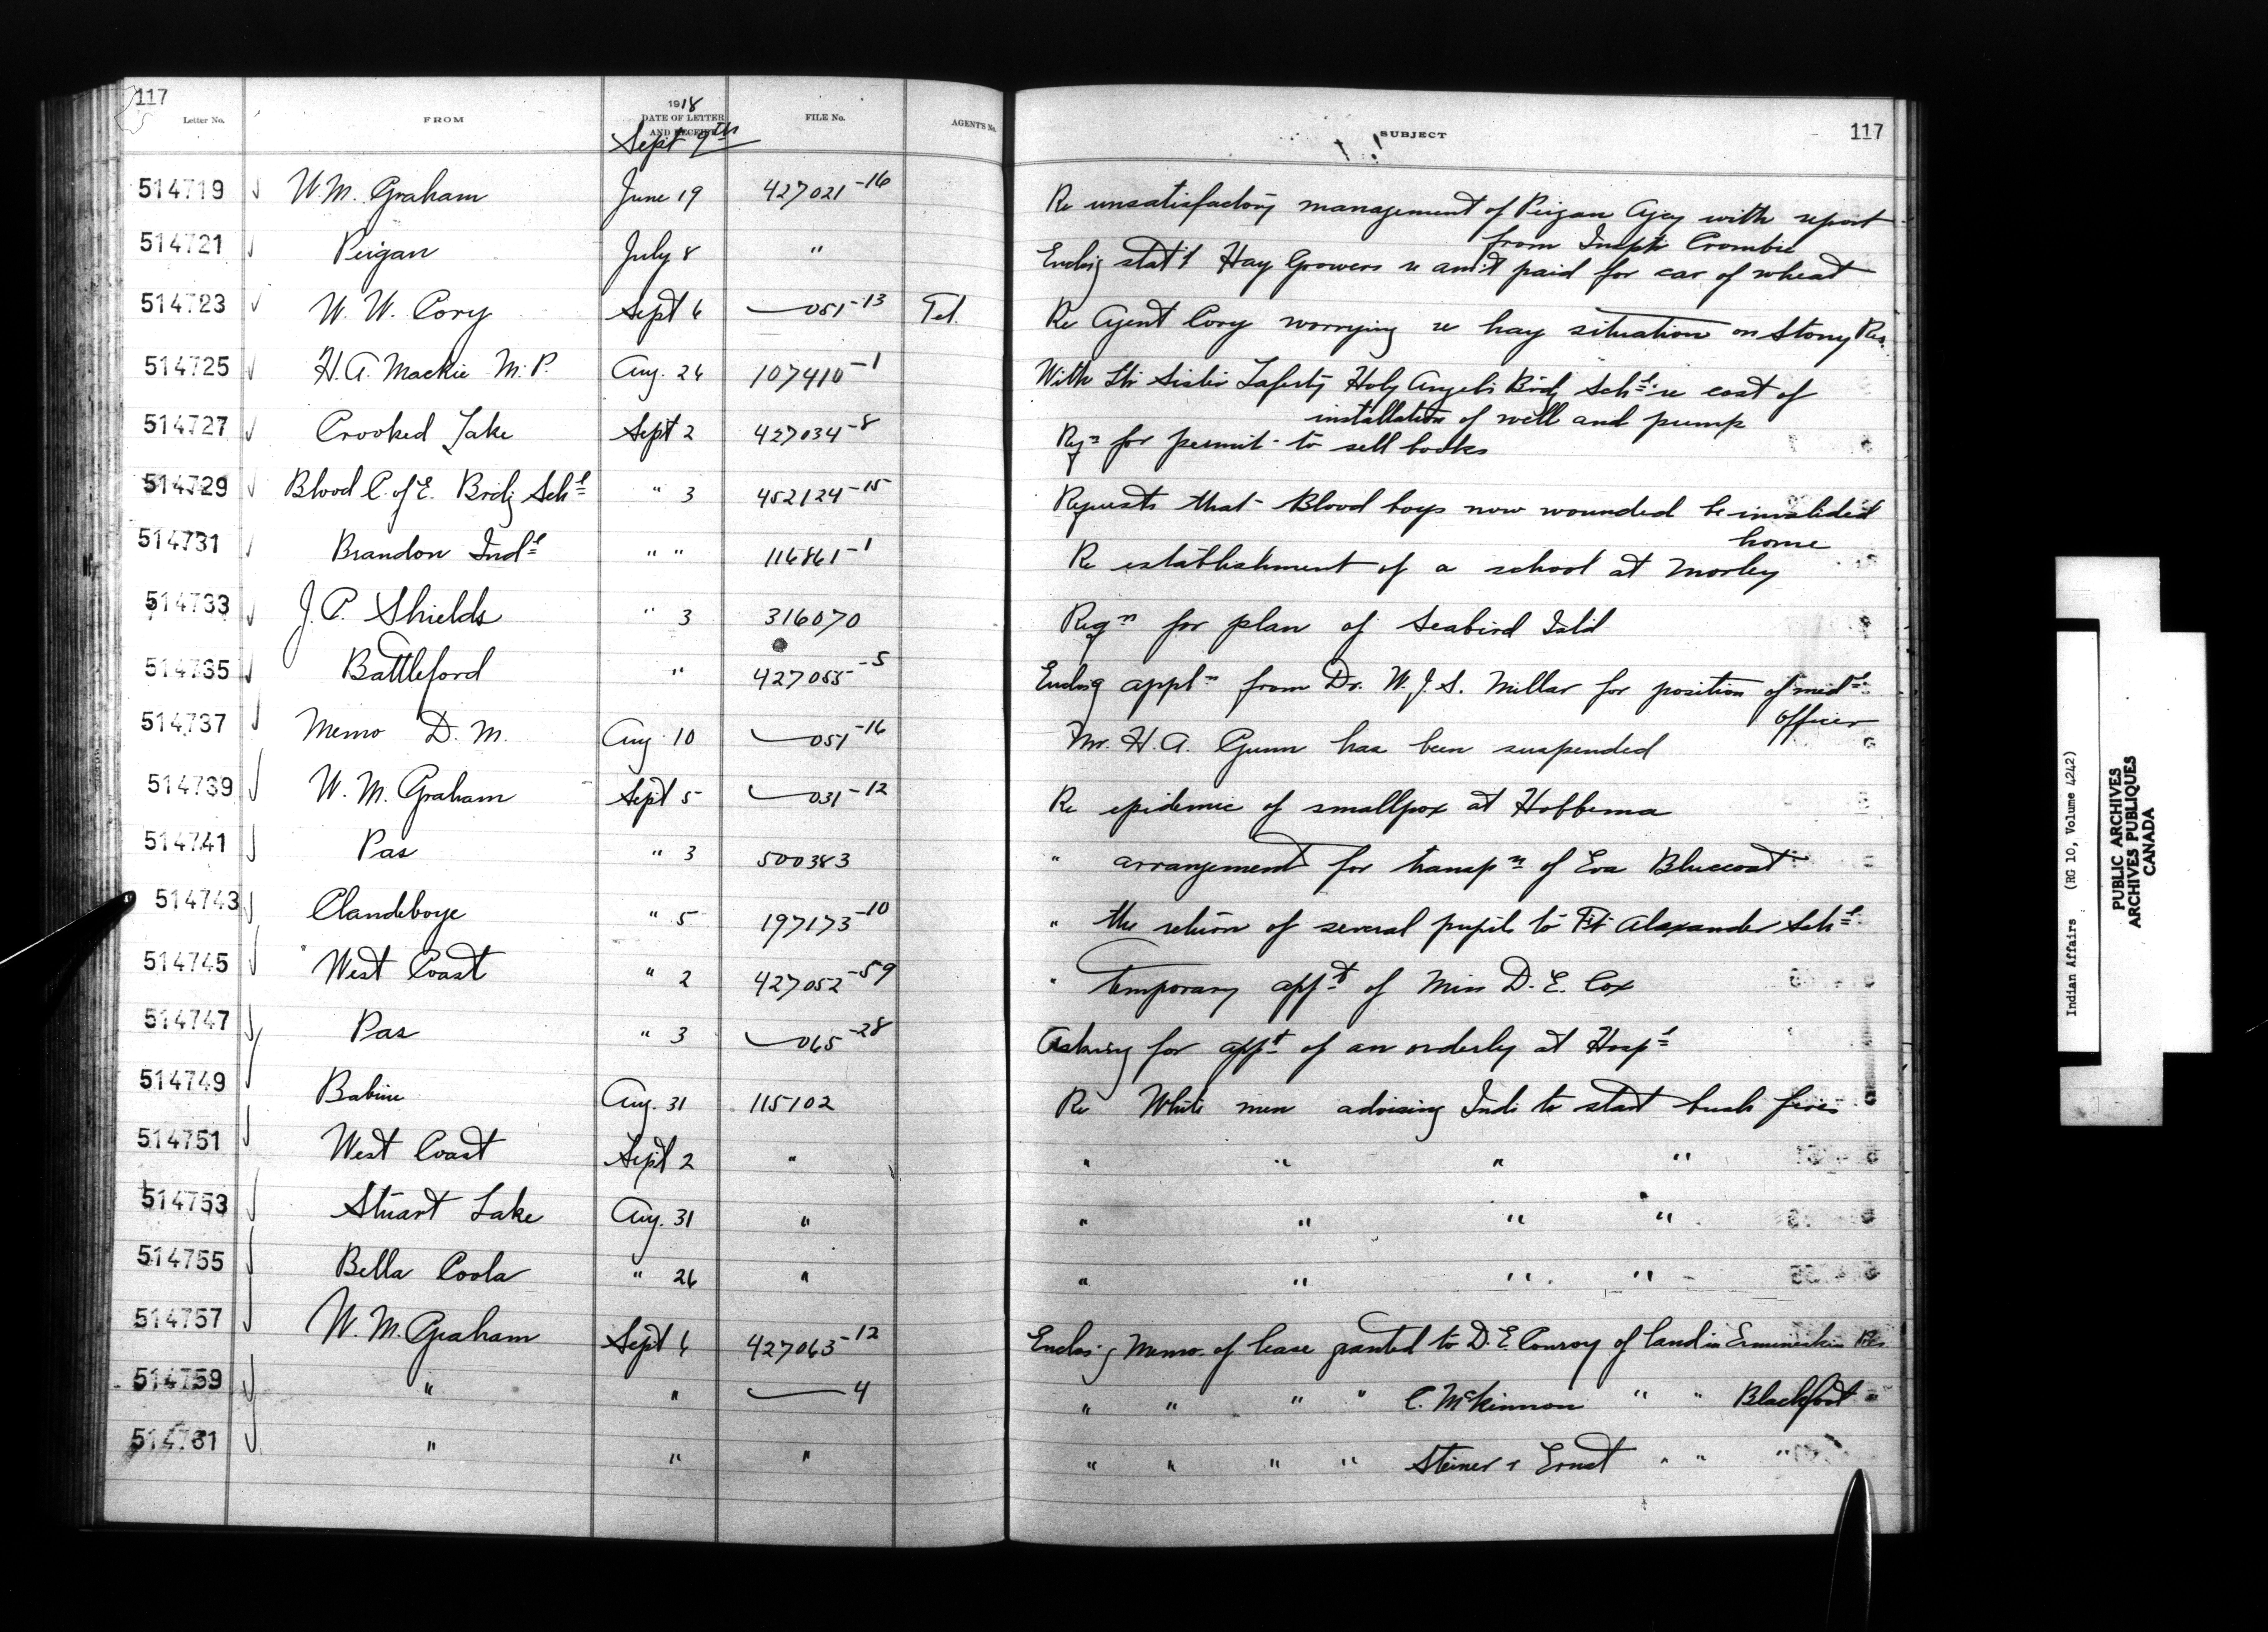 117
Letter No. FROM 1918 DATE OF LETTER AND RECEIPT FILE No. AGENT'S No. SUBJECT 117
Sept 9th
514719 W. M. Graham June 19 427021-16 Re unsatisfactory management of Peigan Agcy with report
from Inspr Crombie
514721 Peigan July 8 " Enclsg stat't Hay Growers re am't paid for car of wheat
514723 W. W. Cory Sept 6 —051-13 Tel. Re Agent Cory worrying re hay situation on Stony Res.
514725 H. A. Mackie M. P. Aug. 26 107410-1 With Ltr Sister Laferty Holy Angels Brdg Schl re cost of
installation of well and pump
514727 Crooked Lake Sept 2 427034-8 Rqn for permit to sell books
514729 Blood C. of E. Brdg Schl " 3 452124-15 Requests that Blood boys now wounded be invalided
home
514731 Brandon Indl " " 116861-1 Re establishment of a school at Morley
514733 J. P. Shields " 3 316070 Reqn for plan of Seabird Isld
514735 Battleford " 427055-5 Enclsg appln from Dr. W. J. S. Millar for position of medl
officer
514737 Memo D. M. Aug. 10 —051-16 Mr. H. A. Gunn has been suspended
514739 W. M. Graham Sept 5 —031-12 Re epidemic of smallpox at Hobbema
514741 Pas " 3 500383 " arrangement for transpn of Eva Bluecoat
514743 Clandeboye " 5 197173-10 " the return of several pupils to Ft Alexander Schl
514745 West Coast " 2 427052-59 " temporary appt of Miss D. E. Cox
514747 Pas " 3 —065-28 Asking for appt of an orderly at Hospl
514749 Babine Aug. 31 115102 Re White men advising Inds to start bush fires
514751 West Coast Sept 2 " " " " "
514753 Stuart Lake Aug. 31 " " " " "
514755 Bella Coola " 26 " " " " "
514757 W. M. Graham Sept 6 427063-12 Enclosg Memo. of lease granted to D. E. Conroy of land in Ermineskin Res
514759 " " —4 " " " " C. McKinnon " " Blackfoot "
514761 " " " " " " " Steiner & Ernst " " "
Indian Affairs (RG 10, Volume 4242)
PUBLIC ARCHIVES
ARCHIVES PUBLIQUES
CANADA